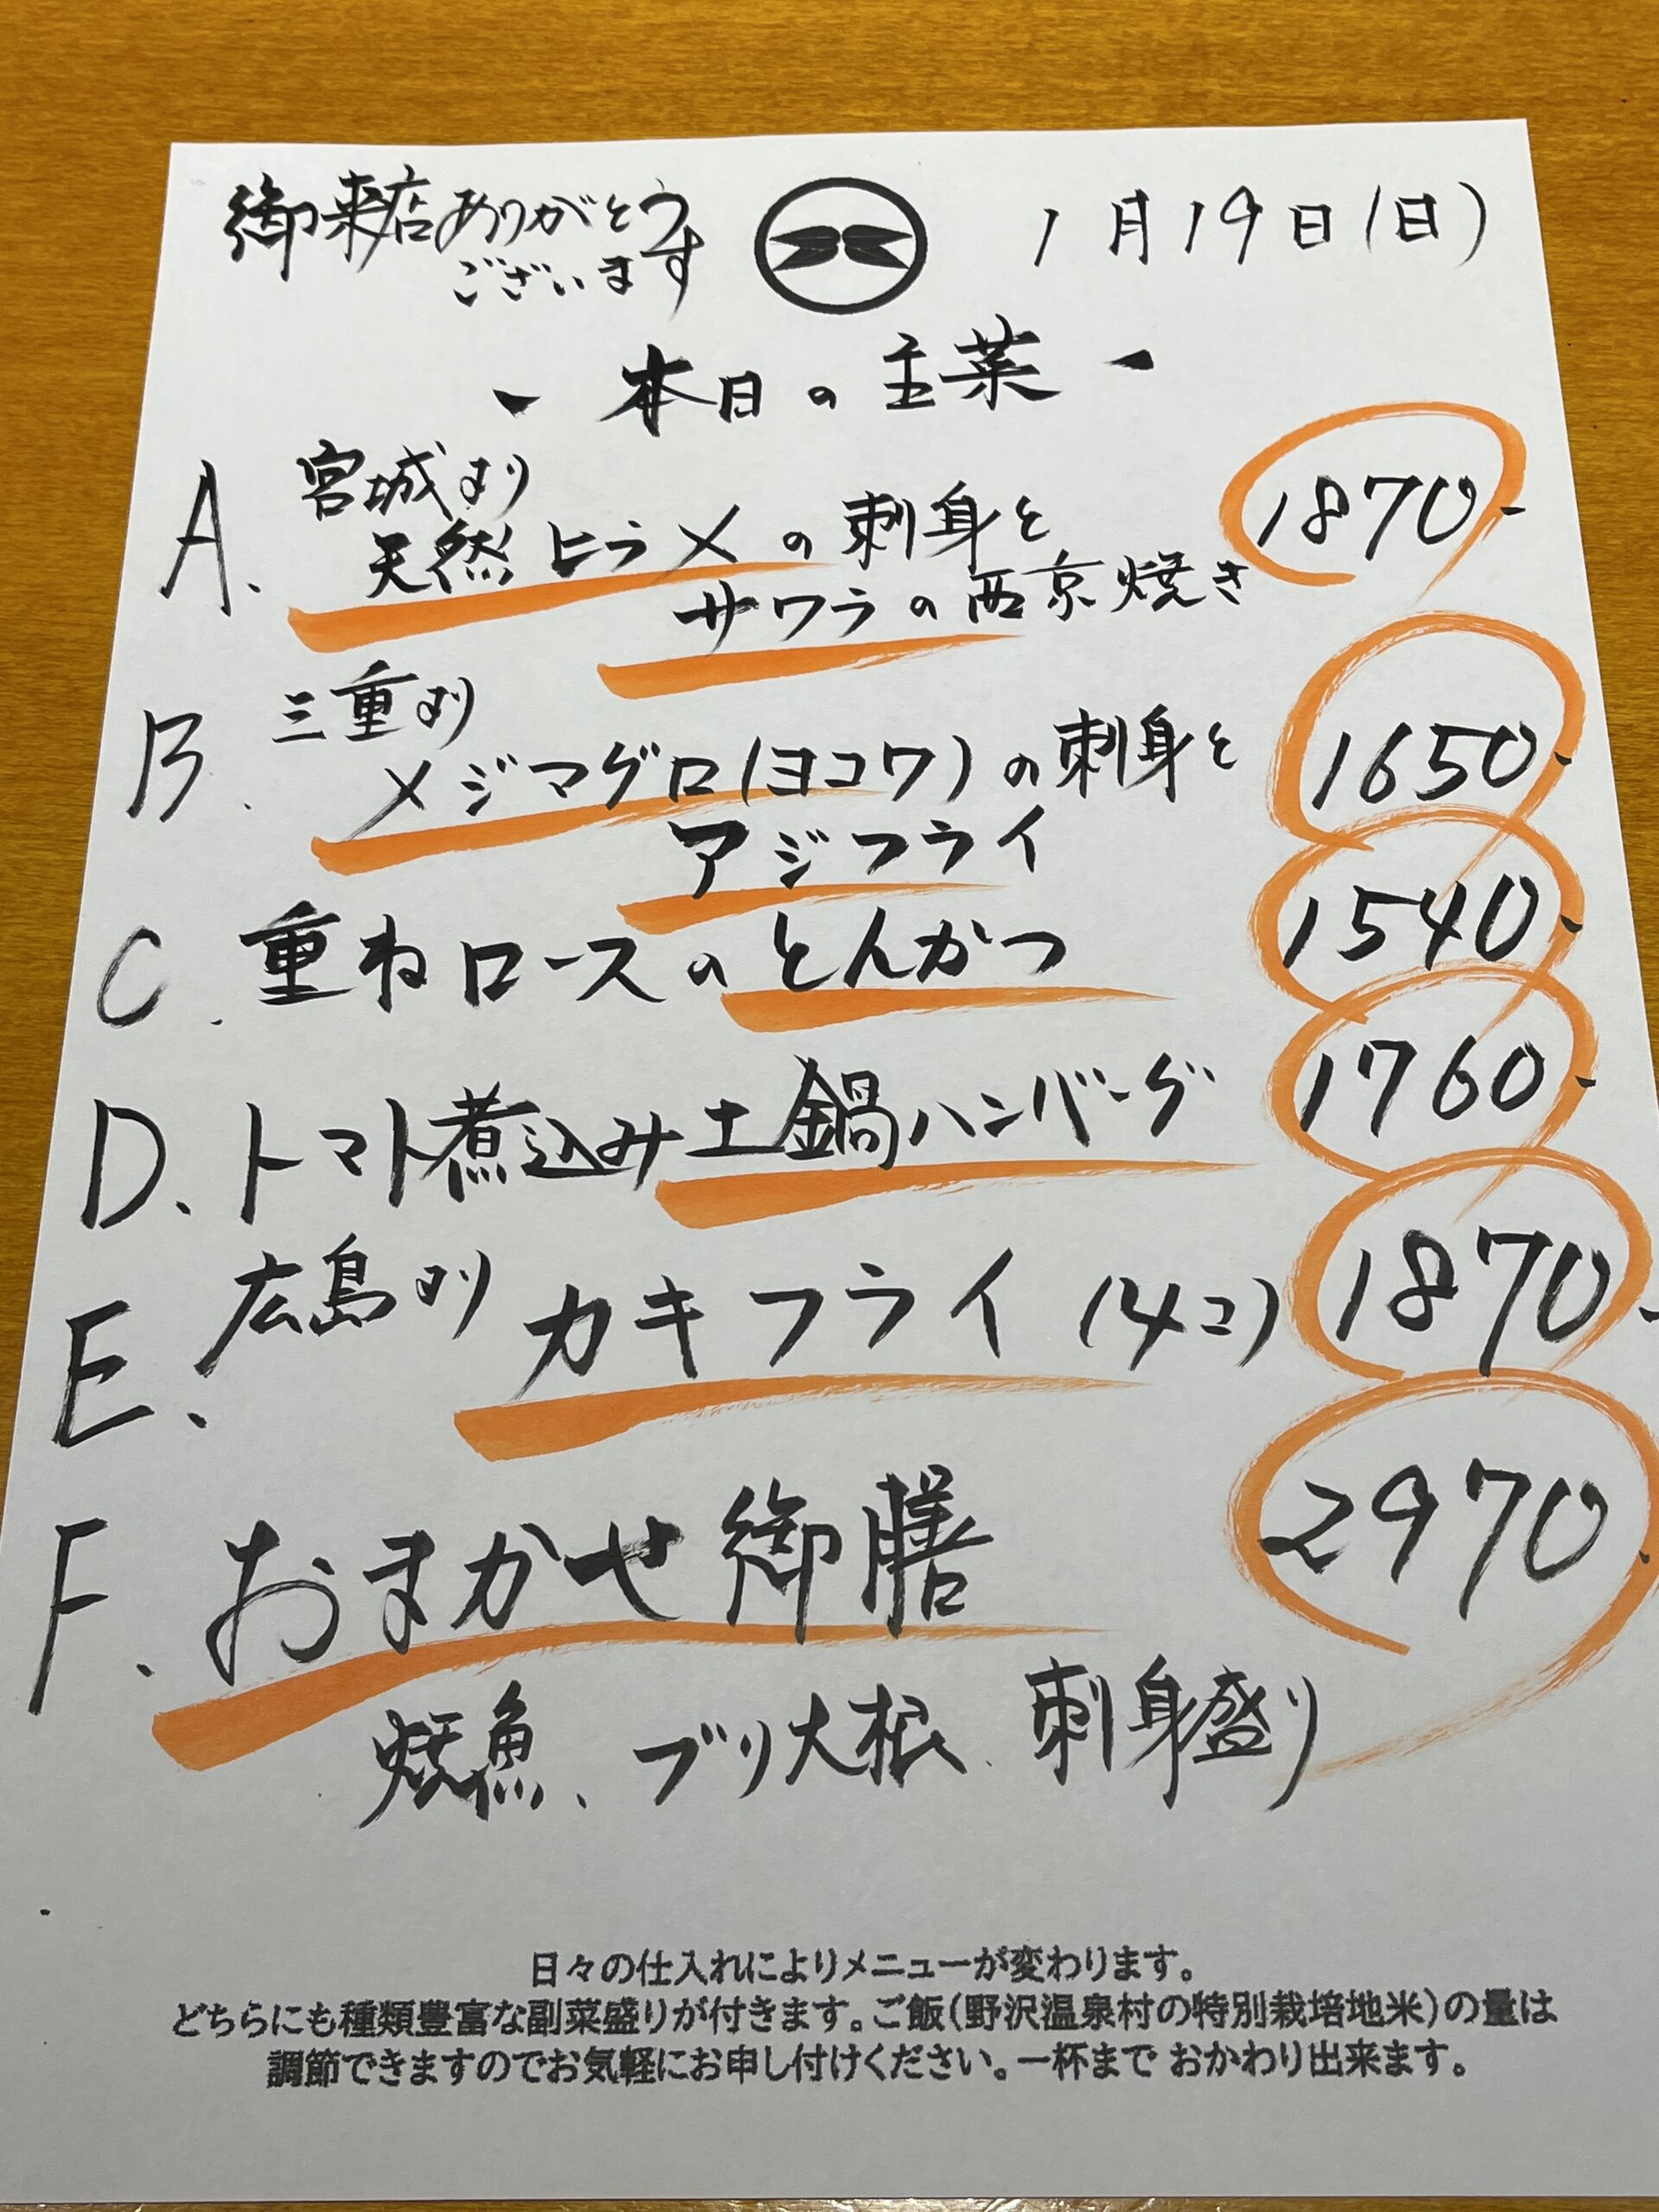 御来店ありがとう
ございます
1月19日(日)
- 本日の主菜 -
A. 宮城より
天然ヒラメの刺身と
サワラの西京焼き
1870-
B. 三重より
メジマグロ(ヨコワ)の刺身と
アジフライ
1650-
C. 重ねロースのとんかつ 1540-
D. トマト煮込み土鍋ハンバーグ 1760-
E. 広島より カキフライ (4コ) 1870-
F. おまかせ御膳 2970-
焼魚、ブリ大根、刺身盛り
日々の仕入れによりメニューが変わります。
どちらにも種類豊富な副菜盛りが付きます。ご飯(野沢温泉村の特別栽培地米)の量は
調節できますのでお気軽にお申し付けください。一杯まで おかわり出来ます。